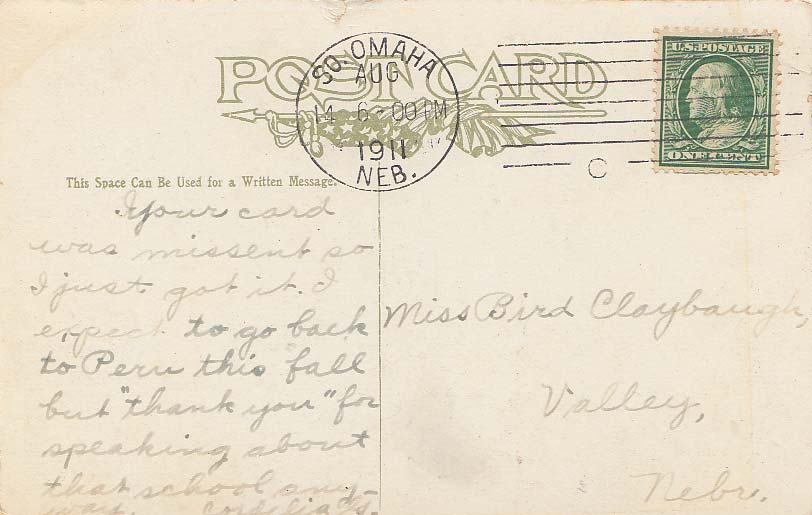 POST CARD
SO. OMAHA
AUG
14 6-00 PM
1911
NEB.
U.S. POSTAGE
ONE CENT
C
This Space Can Be Used for a Written Message.
Your card
was missent so
I just got it. I
expect to go back
to Peru this fall
but "thank you" for
speaking about
that school any-
way. Cordelia
Miss Bird Claybaugh,
Valley,
Nebr.